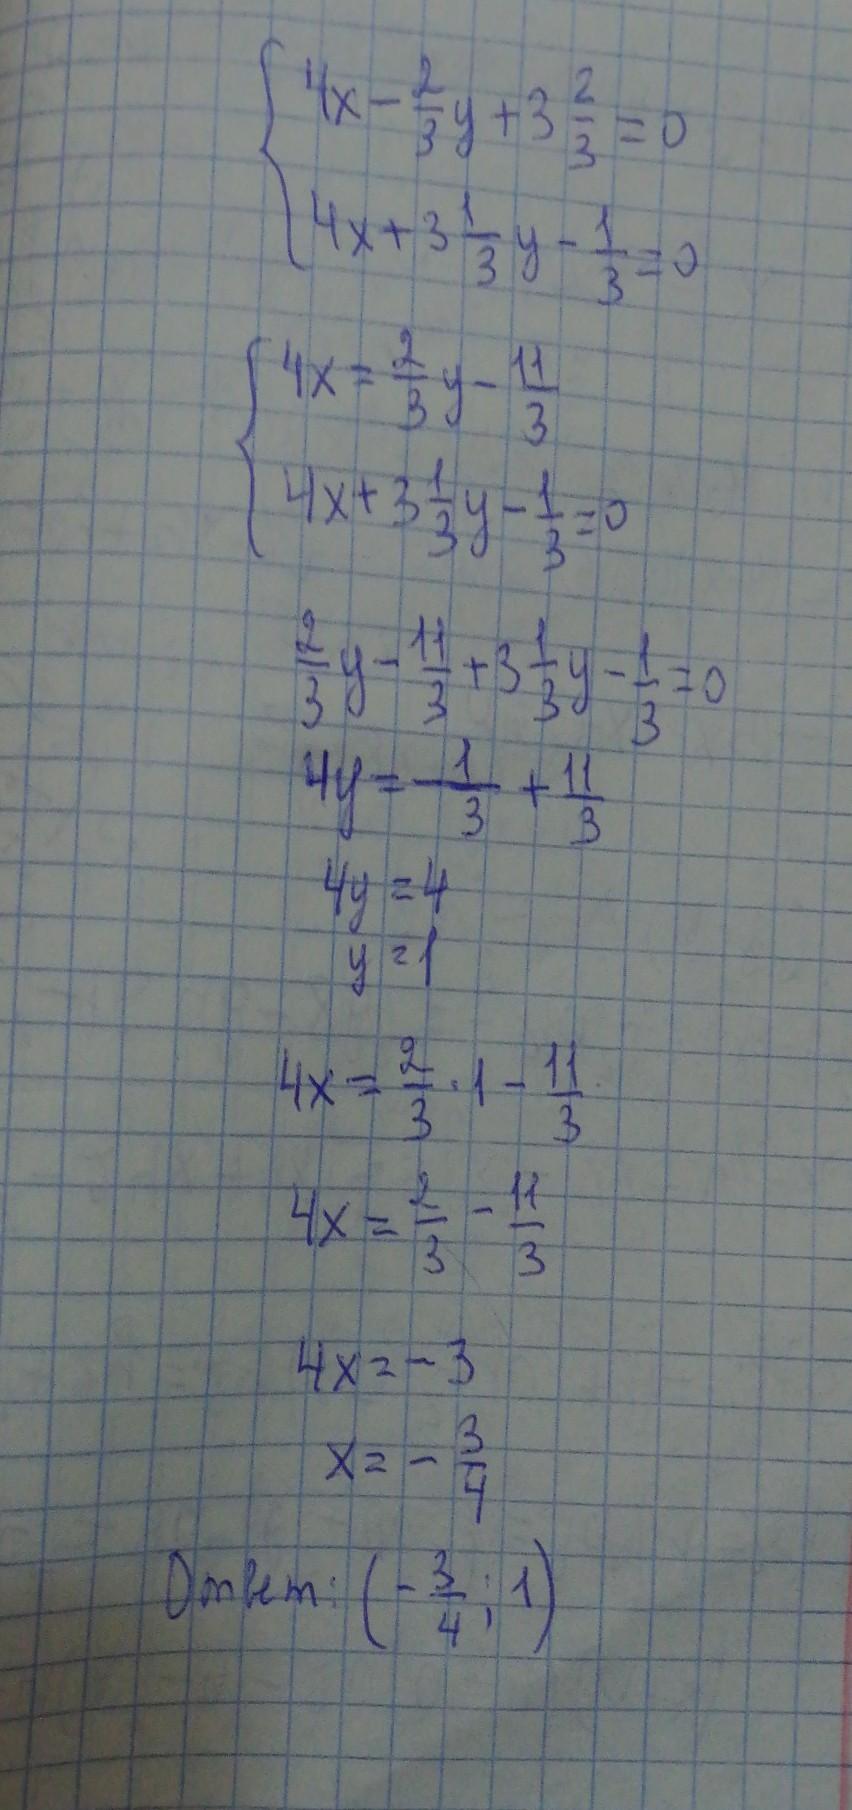 4x - 2/3 y + 3 2/3 = 0
4x + 3 1/3 y - 1/3 = 0
4x = 2/3 y - 11/3
4x + 3 1/3 y - 1/3 = 0
2/3 y - 11/3 + 3 1/3 y - 1/3 = 0
4y = 1/3 + 11/3
4y = 4
y = 1
4x = 2/3 · 1 - 11/3
4x = 2/3 - 11/3
4x = - 3
x = - 3/4
Ответ: (- 3/4 ; 1)